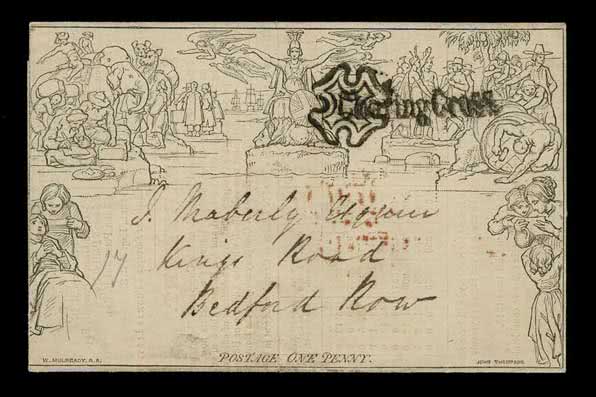 Charing Cross
J. Maberly Esquire
Kings Road
17
Bedford Row
POSTAGE ONE PENNY.
W. MULREADY, R.A.
JOHN THOMPSON